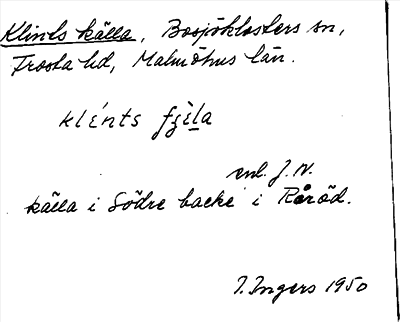 Klints källa, Bosjöklosters sn,
Frosta hd, Malmöhus län.
klínts fjèla
enl. J. N.
källa i Södre backe i Röröd.
I. Ingers 1950